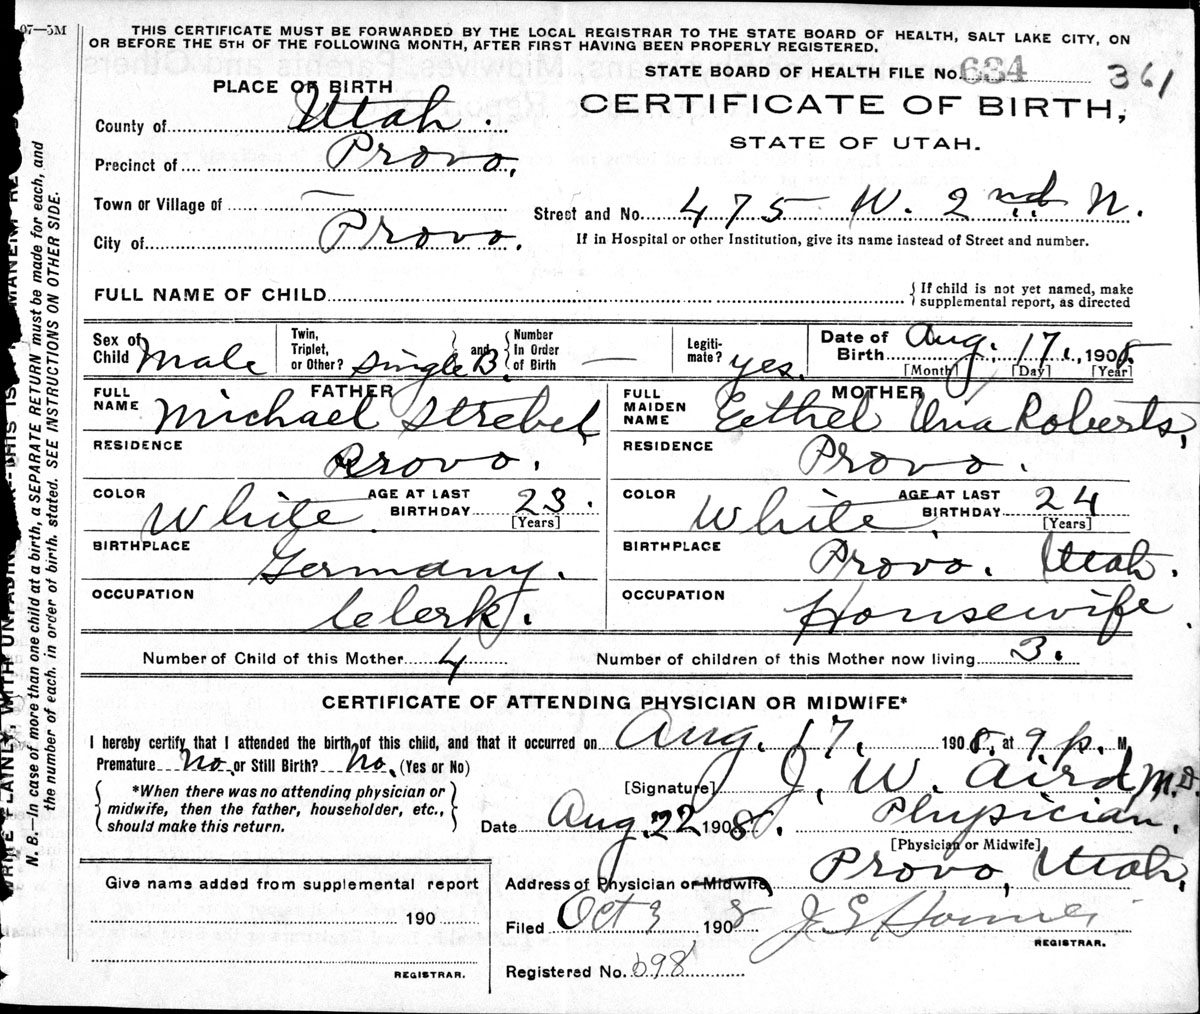 97—5M
THIS CERTIFICATE MUST BE FORWARDED BY THE LOCAL REGISTRAR TO THE STATE BOARD OF HEALTH, SALT LAKE CITY, ON
OR BEFORE THE 5TH OF THE FOLLOWING MONTH, AFTER FIRST HAVING BEEN PROPERLY REGISTERED.
STATE BOARD OF HEALTH FILE No. 634 361
PLACE OF BIRTH
CERTIFICATE OF BIRTH,
STATE OF UTAH.
County of Utah.
Precinct of Provo.
Town or Village of —
Street and No. 475 W. 2nd N.
City of Provo.
If in Hospital or other Institution, give its name instead of Street and number.
FULL NAME OF CHILD { If child is not yet named, make
supplemental report, as directed
Sex of Child Male
Twin, Triplet, or Other? Single B. and Number In Order of Birth —
Legitimate? yes.
Date of Birth Aug. 17., 1908.
[Month] [Day] [Year]
FATHER
FULL NAME Michael Strebel
RESIDENCE Provo.
COLOR White AGE AT LAST BIRTHDAY 23.
[Years]
BIRTHPLACE Germany.
OCCUPATION Clerk.
MOTHER
FULL MAIDEN NAME Eethel Una Roberts,
RESIDENCE Provo.
COLOR White AGE AT LAST BIRTHDAY 24
[Years]
BIRTHPLACE Provo. Utah.
OCCUPATION Housewife
Number of Child of this Mother 4
Number of children of this Mother now living 3.
CERTIFICATE OF ATTENDING PHYSICIAN OR MIDWIFE*
I hereby certify that I attended the birth of this child, and that it occurred on Aug. 17. 1908. at 9 p. M.
Premature No. or Still Birth? No. (Yes or No)
*When there was no attending physician or
midwife, then the father, householder, etc.,
should make this return.
[Signature] J. W. Aird, M.D.
Date Aug. 22 1908. Physician.
[Physician or Midwife]
Address of Physician or Midwife Provo, Utah.
Filed Oct 3 1908
REGISTRAR.
Registered No. 698
Give name added from supplemental report
190
REGISTRAR.
N. B.—In case of more than one child at a birth, a SEPARATE RETURN must be made for each, and
the number of each, in order of birth, stated. SEE INSTRUCTIONS ON OTHER SIDE.
PLAINLY, WITH
THIS IS A